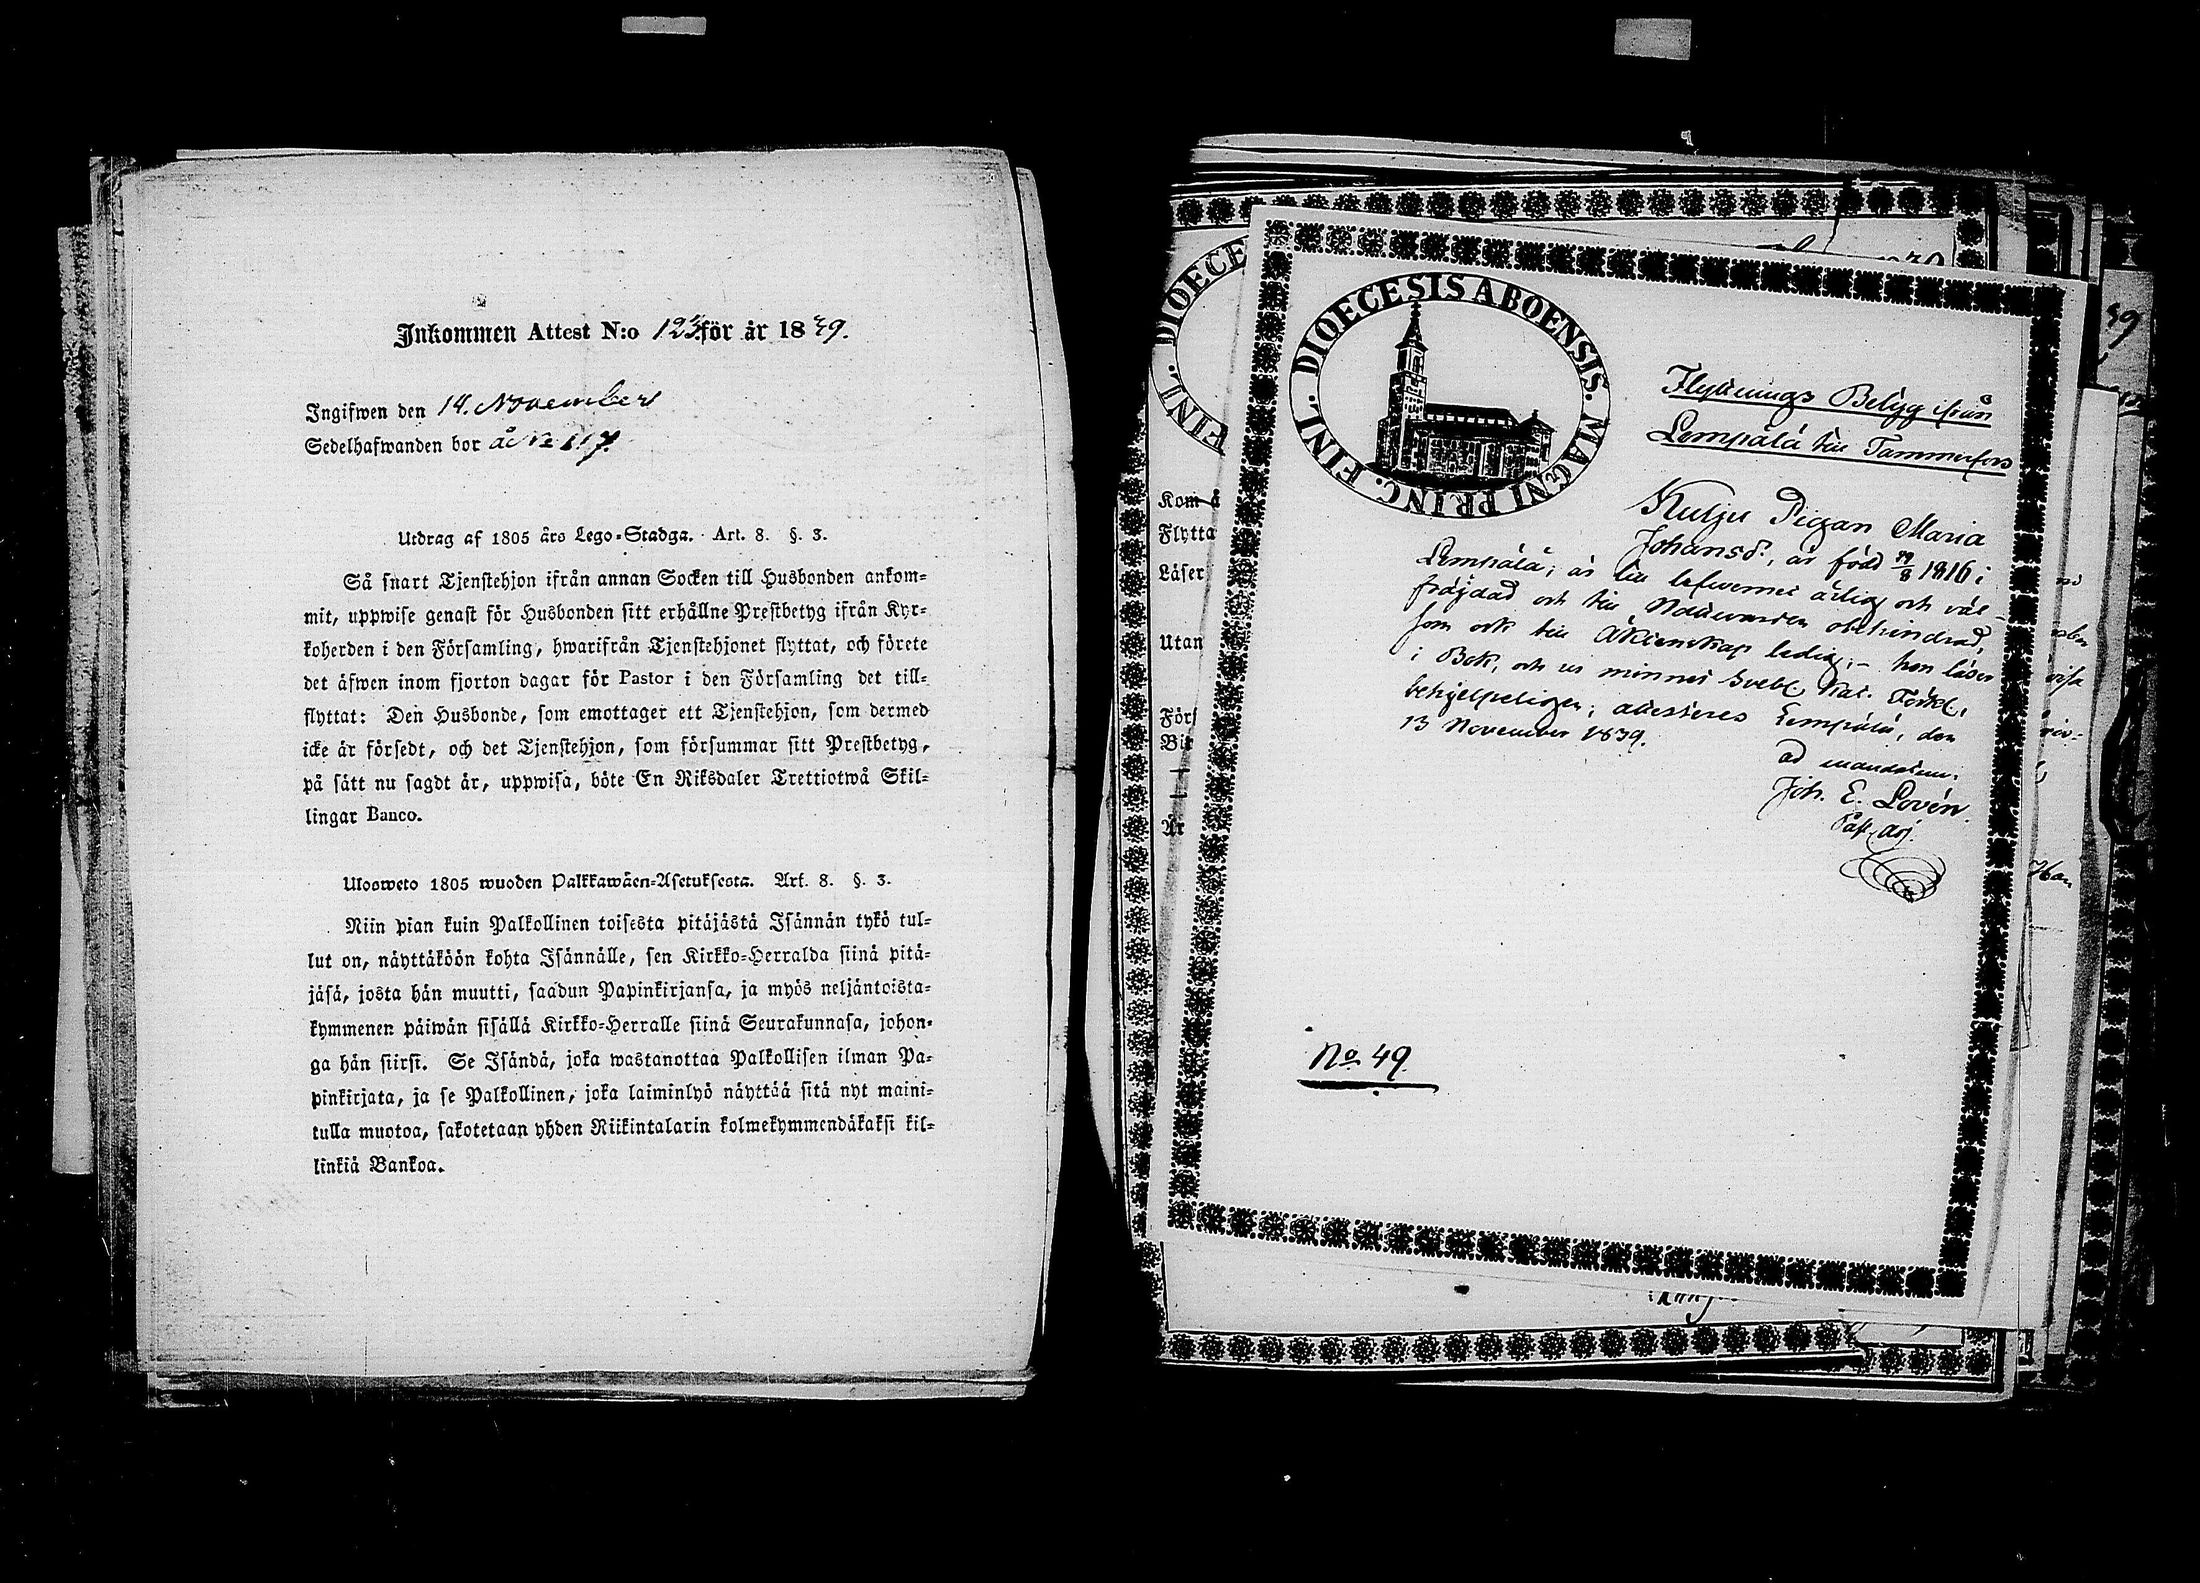 Inkommen Attest N:o 123 för år 1839.
Ingifwen den 14. November
Sedelhafwanden bor å No 117.
Utdrag af 1805 års Lego-Stadga. Art. 8. §. 3.
Så snart Tjenstehjon ifrån annan Socken till Husbonden ankom-
mit, uppwise genast för Husbonden sitt erhållne Prestbetyg ifrån Kyr-
koherden i den Församling, hwarifrån Tjenstehjonet flyttat, och förete
det äfwen inom fjorton dagar för Pastor i den Församling det till-
flyttat: Den Husbonde, som emottager ett Tjenstehjon, som dermed
icke är försedt, och det Tjenstehjon, som försummar sitt Prestbetyg,
på sätt nu sagdt är, uppwisa, böte En Riksdaler Trettiotwå Skil-
lingar Banco.
Ulosweto 1805 wuoden Palkkawäen-Asetuksesta. Art. 8. §. 3.
Niin pian kuin Palkollinen toisesta pitäjästä Isännän tykö tul-
lut on, näyttäköön kohta Isännälle, sen Kirkko-Herralda siinä pitä-
jäsä, josta hän muutti, saadun Papinkirjansa, ja myös neljäntoista-
kymmenen päiwän sisällä Kirkko-Herralle siinä Seurakunnasa, johon-
ga hän siirsi. Se Isändä, joka wastanottaa Palkollisen ilman Pa-
pinkirjata, ja se Palkollinen, joka laiminlyö näyttää sitä nyt maini-
tulla muotoa, sakotetaan yhden Riikintalarin kolmekymmendäkaksi kil-
linkiä Bankoa.
DIOECESIS ABOENSIS. MAGNI PRINC. FINL.
Flyttnings Betyg ifrån
Lempälä till Tammerfors
Kulju Pigan Maria
Johansdr, är född 19/8 1816 i
Lempälä, är till lefwernet ärlig och väl-
fräjdad och till Nattvarden obehindrad,
som ock till Äktenskap ledig; - hon läser
i Bok, och ur minnet Svebel. Kat. Förkl.
behjelpeligen; attesteras Lempälä, den
13 November 1839.
ad mandatum.
Joh. E. Lovén.
Past. Adj.
No 49
DIOECE
FINL.
Kom å
Flytta
Läser
Utan
Förs
Bit
År
39
Han